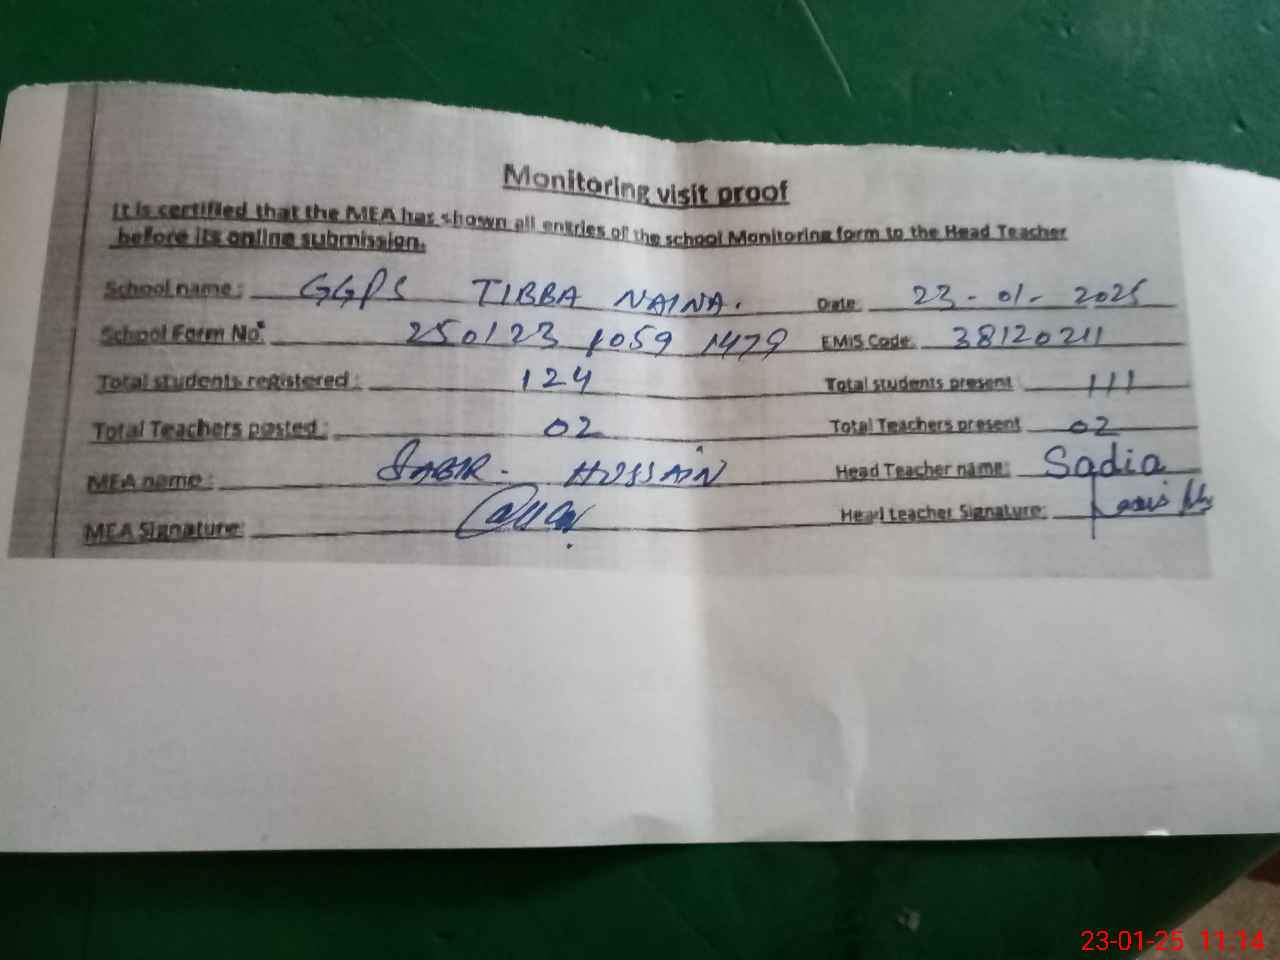 Monitoring visit proof
It is certified that the MEA has shown all entries of the school Monitoring form to the Head Teacher
before its online submission.
School name: GGPS TIBBA NAINA. Date 23-01-2025
School Form No: 250123 1059 1479 EMIS Code: 38120211
Total students registered: 124 Total students present 111
Total Teachers posted: 02 Total Teachers present 02
MEA name: SABIR. HUSSAIN Head Teacher name: Sadia
MEA Signature: Head teacher Signature:
23-01-25 11:14